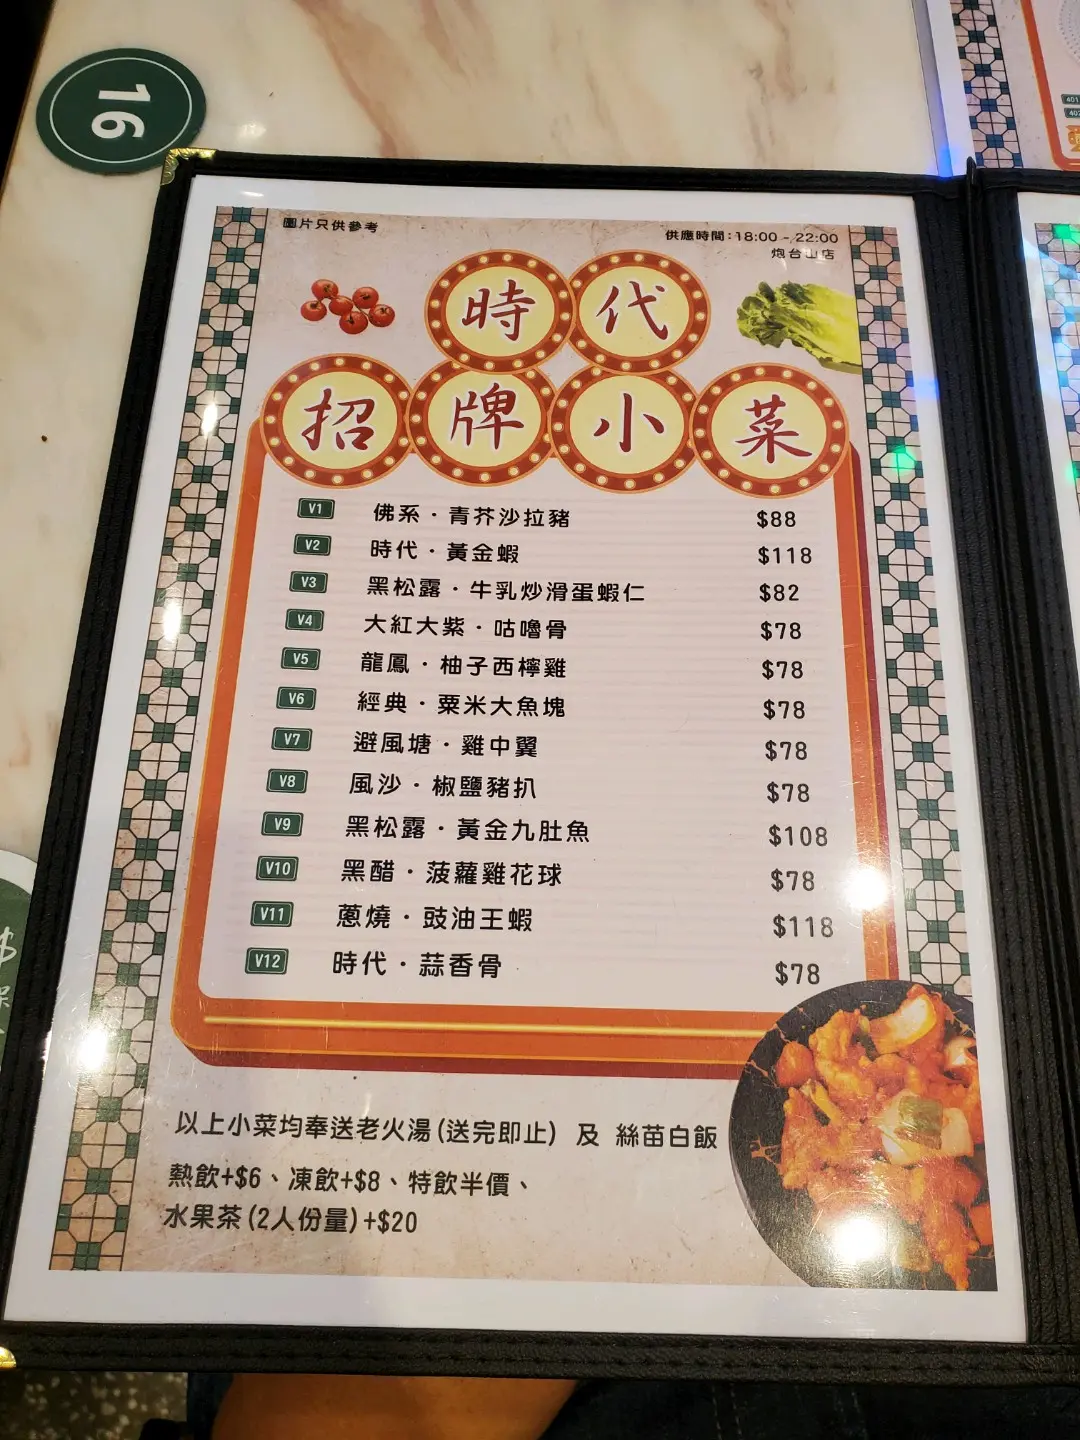 16
圖片只供參考
供應時間：18:00 - 22:00
炮台山店
時代
招牌小菜
V1 佛系・青芥沙拉豬 $88
V2 時代・黃金蝦 $118
V3 黑松露・牛乳炒滑蛋蝦仁 $82
V4 大紅大紫・咕嚕骨 $78
V5 龍鳳・柚子西檸雞 $78
V6 經典・粟米大魚塊 $78
V7 避風塘・雞中翼 $78
V8 風沙・椒鹽豬扒 $78
V9 黑松露・黃金九肚魚 $108
V10 黑醋・菠蘿雞花球 $78
V11 蔥燒・豉油王蝦 $118
V12 時代・蒜香骨 $78
以上小菜均奉送老火湯(送完即止) 及 絲苗白飯
熱飲+$6、凍飲+$8、特飲半價、
水果茶(2人份量)+$20